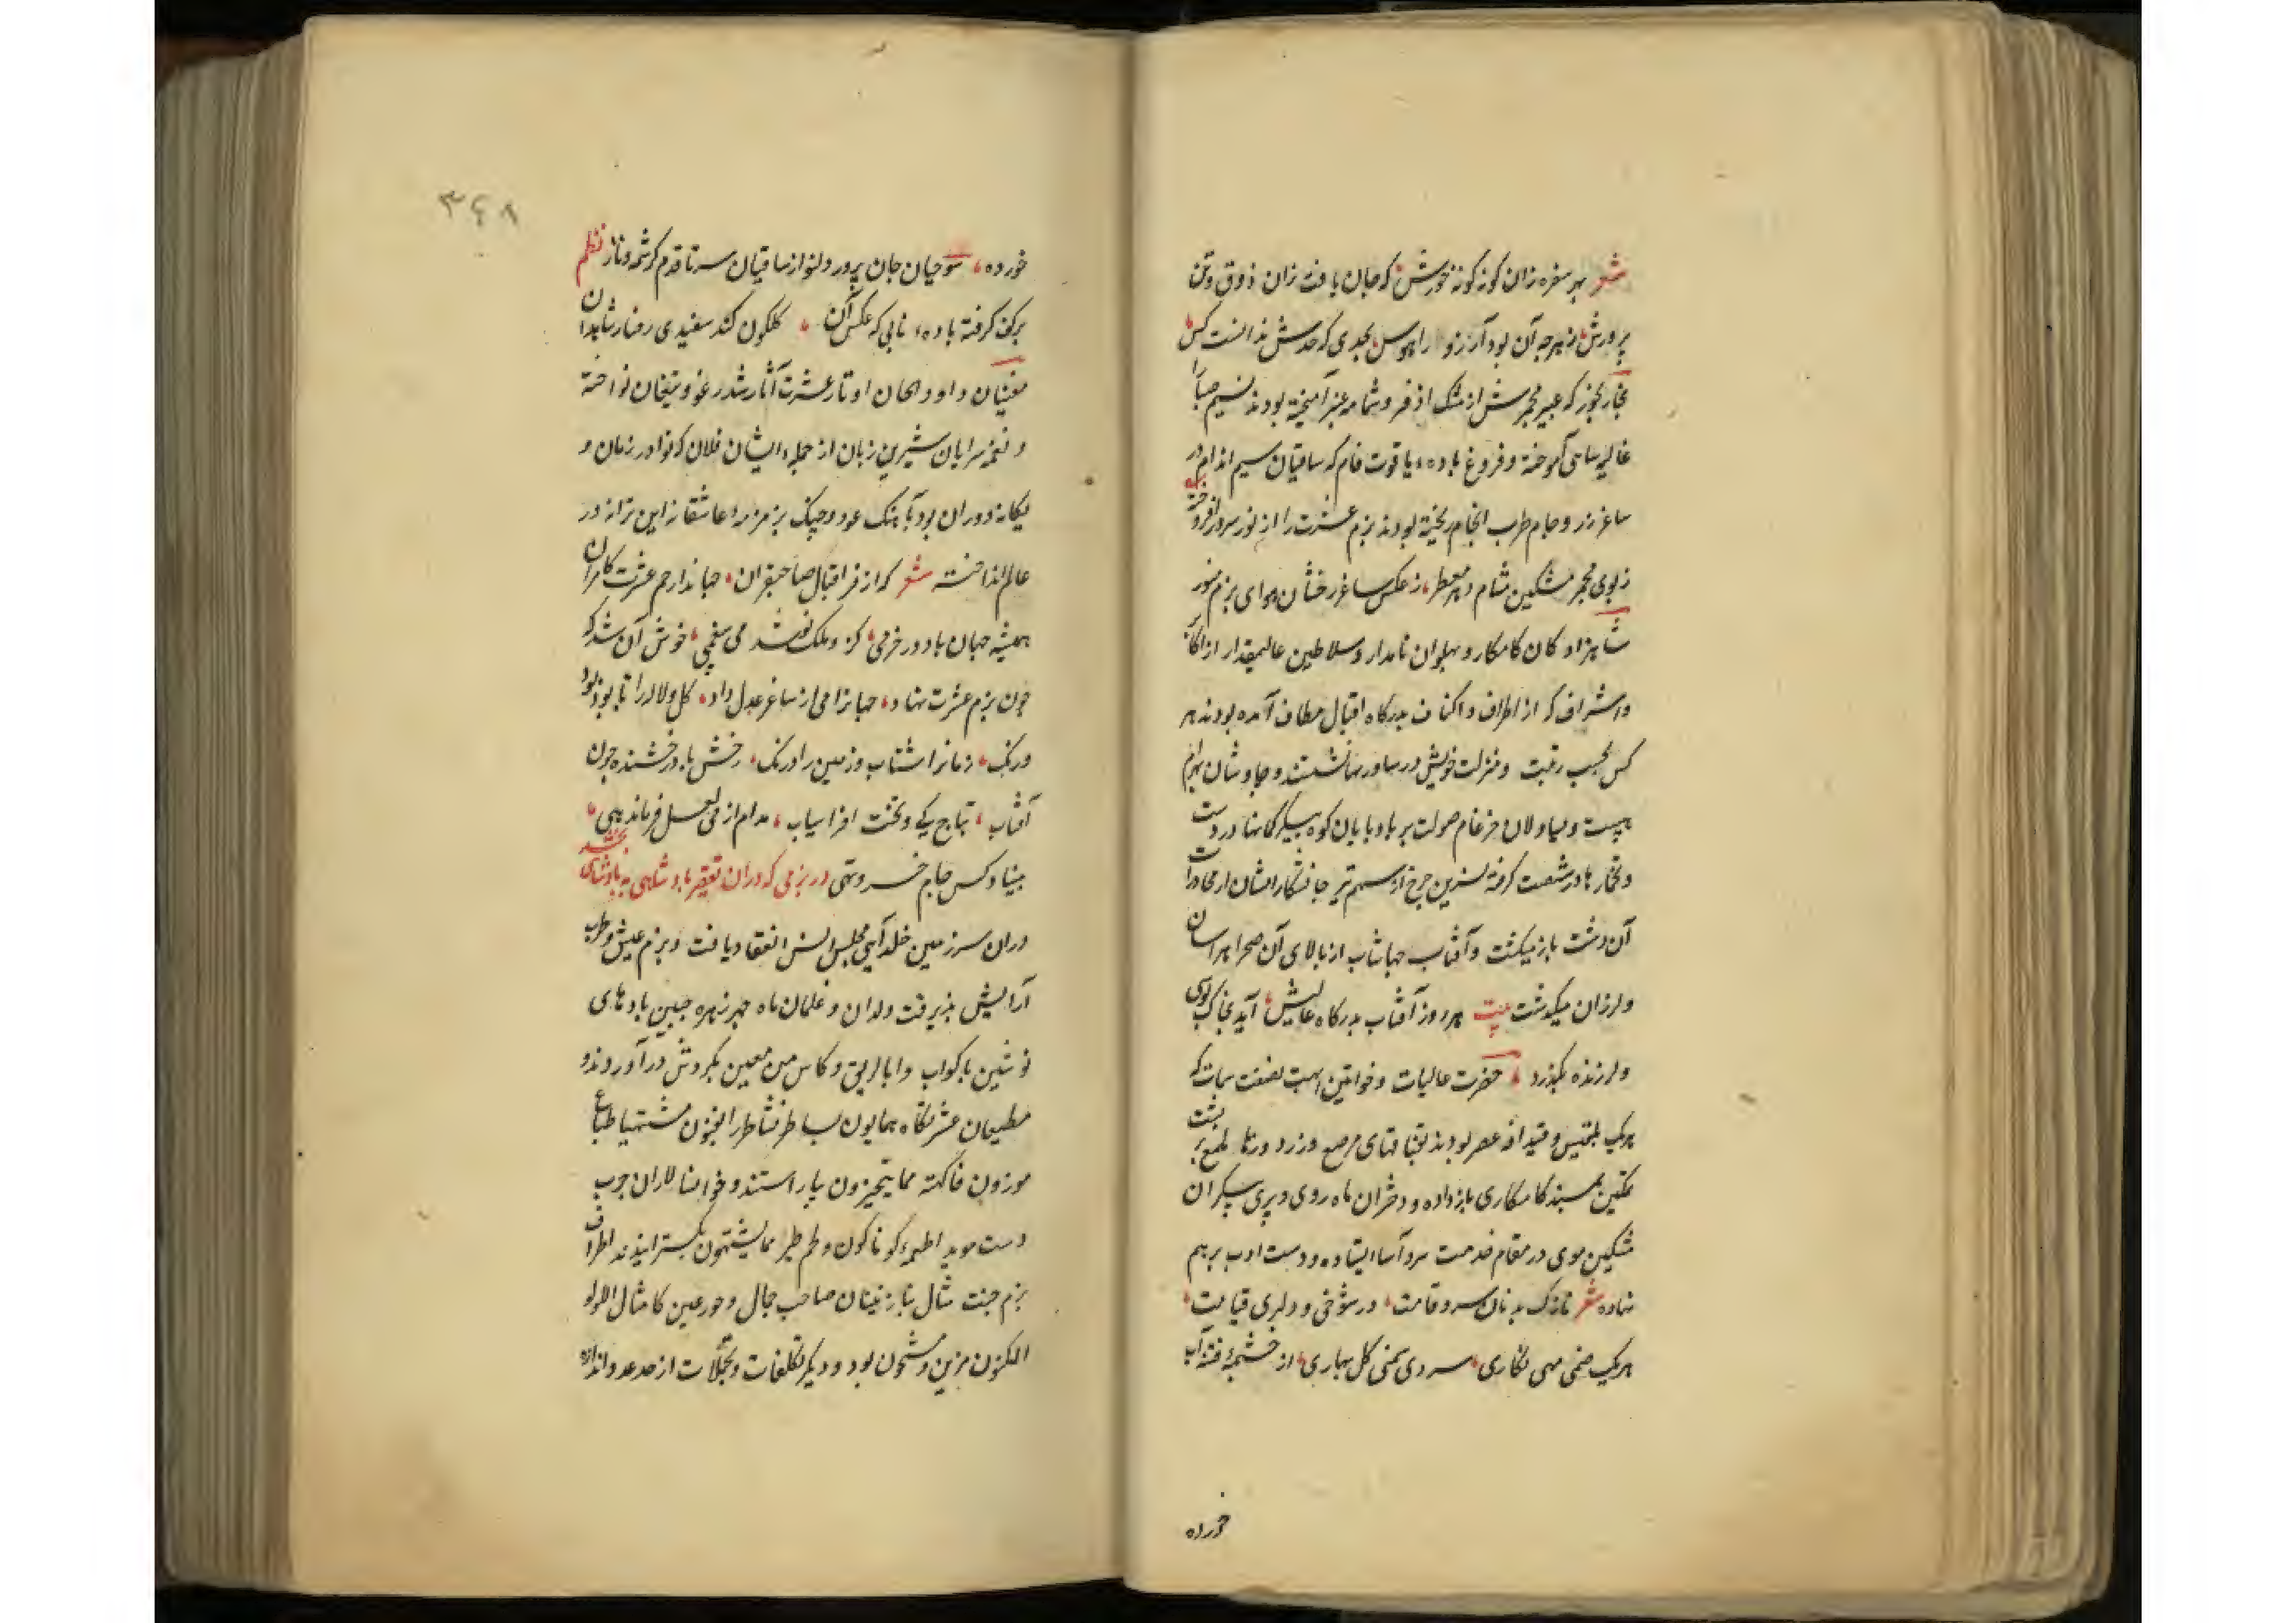 شعر بهر سفره زان کونه کونه خورش که جان یافت زان ذوق و تن
پرورش ز هرچه آن بود آرزو را هوس بحدی که حدش ندانست کس
بخار بخور که عبیر مجمرش از مشک اذفر و شمامه عنبر آمیخته بودند نسیم صبا را
غالیه سایی آموخته و فروغ باده یاقوت فام که ساقیان سیم اندام در
ساغر زر و جام طرب انجام ریخته بودند بزم عشرت را از نور سرور افروخته
ز بوی مجمر مشکین مشام دهر معطر ز عکس ساغر رخشان هوای بزم منور
شاهزاد کان کامکار و پهلوان نامدار و سلاطین عالیمقدار از اکابر
و اشراف که از اطراف و اکناف بدرکاه اقبال مطاف آمده بودند هر
کس بحسب رتبت و منزلت خویش در ساوریها نشستند و چاوشان بهرام
هیبت و یساولان ضرغام صولت بر بادپایان کوه پیکر کمانها در دست
و تخمار ها در شصت کرفته نسرین چرخ از سهم تیر جانشکار ایشان از محاذات
آن دشت باز میکشت و آفتاب جهانتاب از بالای آن صحرا هراسان
و لرزان میکذشت بیت هر روز آفتاب بدرکاه عالیش آید بخاک بوسی
و لرزنده بکذرد حضرت عالیات و خواتین عفت سمات که
هریک بلقیس و قیدافه عصر بودند بقتاقهای مرصع و زر دوزها ملمع پشت بر
تمکین بمسند کامکاری باز داده و دختران ماه روی و پری پیکران
مشکین موی در مقام خدمت سرو آسا ایستاده و دست ادب برهم
نهاده شعر نازک بدنان سرو قامت در شوخی و دلبری قیامت
هریک صنمی مهی نکاری سروی سمنی کل بهاری از چشمه فتنه آب
خورده
۳۴۸
خورده سوجیان جان پرور دلنواز ساقیان سر تا قدم کرشمه و ناز نظم
بر کف کرفته باده نابی که عکس آن کلکون کند سفیدی رخسار شاهدان
مغنیان داود الحان اوتار عشرت آثار شدرغو و یتغان نواخته
و نغمه سرایان شیرین زبان از جمله ایشان فلان که نوادر زمان و
یکانه دوران بود بآهنک عود و چنک بزمزمه عاشقانه این ترانه در
عالم انداخته شعر که از فر اقبال صاحبقران جهاندار جم عشرت کامران
همیشه جهان باد در خرمی کزو ملک نو شد می بیغمی خوش آن شه که
چون بزم عشرت نهاد جهانرا می از ساغر عدل داد کل و لاله را تا بود بوی
و رنک زمانرا شتاب و زمین را درنک رخش باد رخشنده چون
آفتاب بتاج کی و تخت افراسیاب مدام از می لعل فرماندهی
مبیناد کس جام خسرو تهی در بزمی که دران تقصیر پادشاهی به پادشاهی بخشد
دران سرزمین خلد آیین مجلس انس انعقاد یافت و بزم عیش و طرب
آرایش پذیرفت ولدان و غلمان ماه چهر زهره جبین بادهای
نوشین باکواب و اباریق و کاس من معین بکردش در آوردند و
مطیعان عشرتکاه همایون بساط نشاط را بفنون مشتهیات طباع
موزون فاکهة مما یتخیرون بیاراستند و خوانسالاران چرب
دست موید اطعمه کوناکون و لحم طیر مما یشتهون بکسترانیدند اطراف
بزم جنت مثال بنازنینان صاحب جمال و حور عین کامثال اللولو
المکنون مزین و مشحون بود و دیکر تکلفات و تجملات از حد عد و اندازه